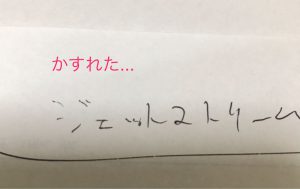 かすれた...
ジェットストリーム